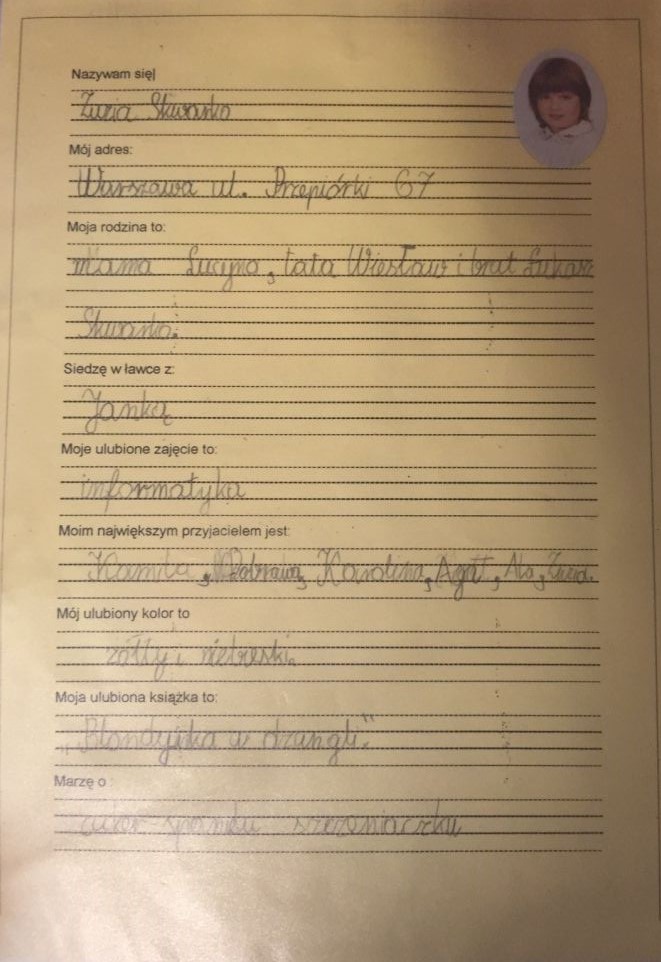 Nazywam się
Zuzia Skwarko
Mój adres:
Warszawa ul. Przepiórki 67
Moja rodzina to:
mama Lucyna, tata Wiesław i brat Łukasz
Skwarko.
Siedzę w ławce z:
Janką
Moje ulubione zajęcie to:
informatyka
Moim największym przyjacielem jest:
Kamila, Dobrawa, Karolina, Agat, Ala, Zuzia.
Mój ulubiony kolor to
żółty i niebeski.
Moja ulubiona książka to:
„Blondynka w dżungli."
Marzę o
cuker spanelu szczeniaczku